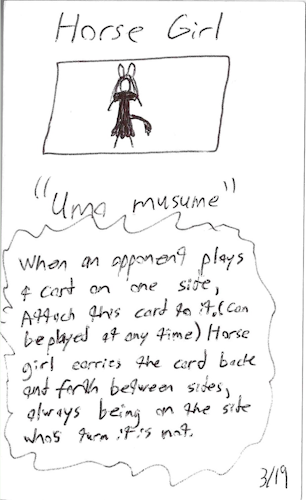 Horse Girl
"Uma musume"
When an opponent plays
a card on one side,
Attach this card to it.(Can
be played at any time) Horse
girl carries the card back
and forth between sides,
always being on the side
who's turn it is not.
3/19